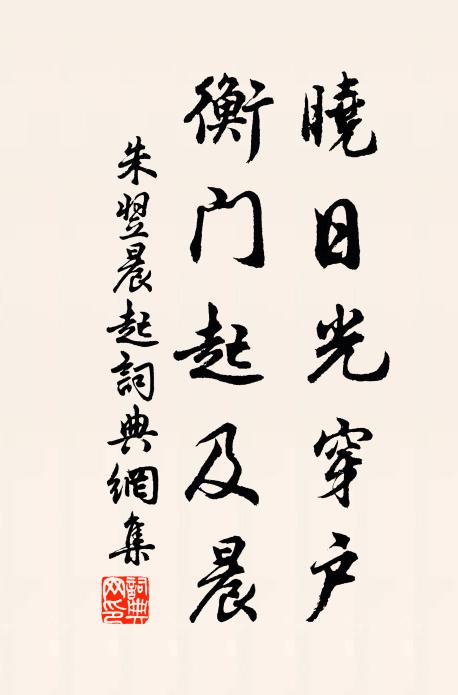 曉日光穿户
衡门起及晨
朱翌晨起詞典網集
詞典网印